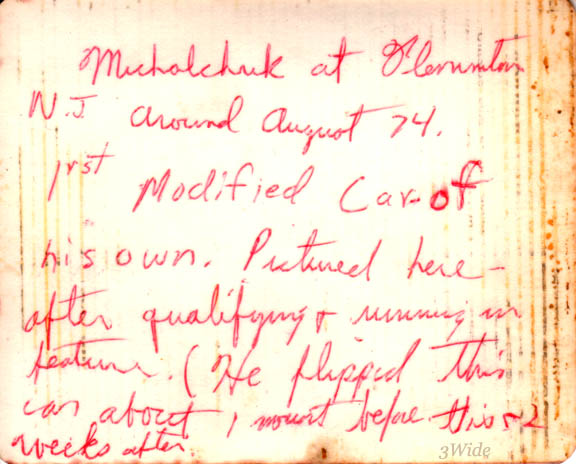 Micholchuk at Flemington
N.J around August 74.
1rst Modified Car of
his own. Pictured here
after qualifying + running in
feature. (He flipped this
car about 1 mont before this + 2
weeks after.
3Wide